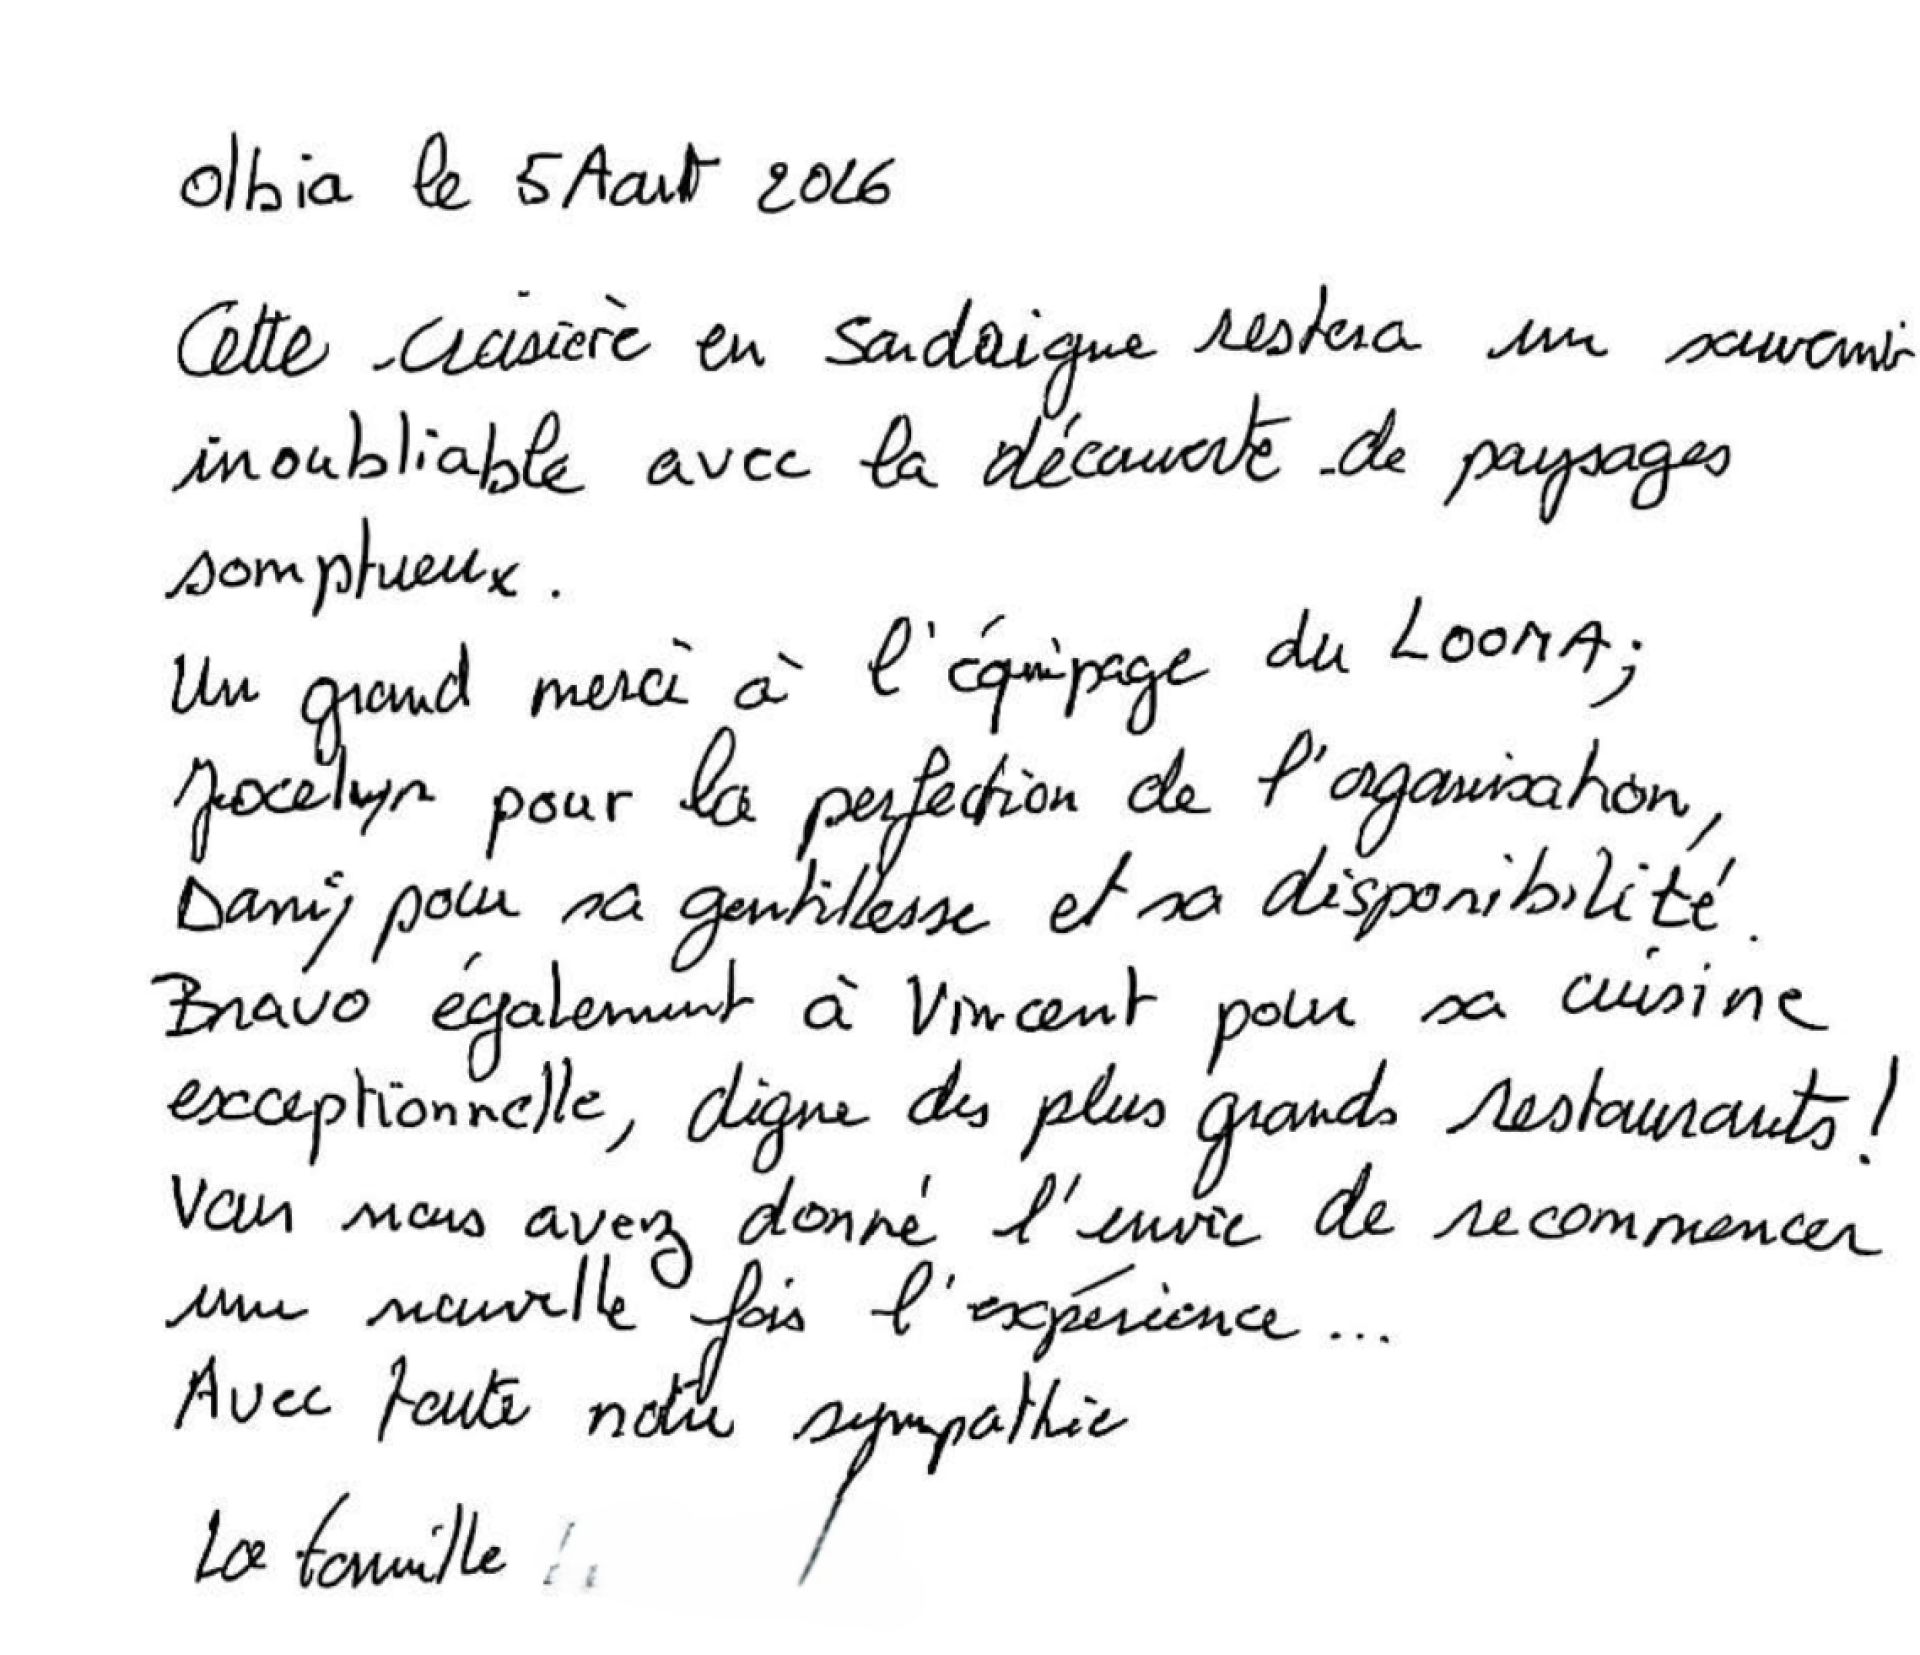 Olbia le 5 Août 2016
Cette croisière en Sardaigne restera un souvenir
inoubliable avec la découverte de paysages
somptueux.
Un grand merci à l'équipage du LOOMA;
Jocelyn pour la perfection de l'organisation,
pour sa gentillesse et sa disponibilité.
Bravo également à Vincent pour sa cuisine
exceptionnelle, digne des plus grands restaurants !
Vous nous avez donné l'envie de recommencer
une nouvelle fois l'expérience ...
Avec toute notre sympathie
La famille